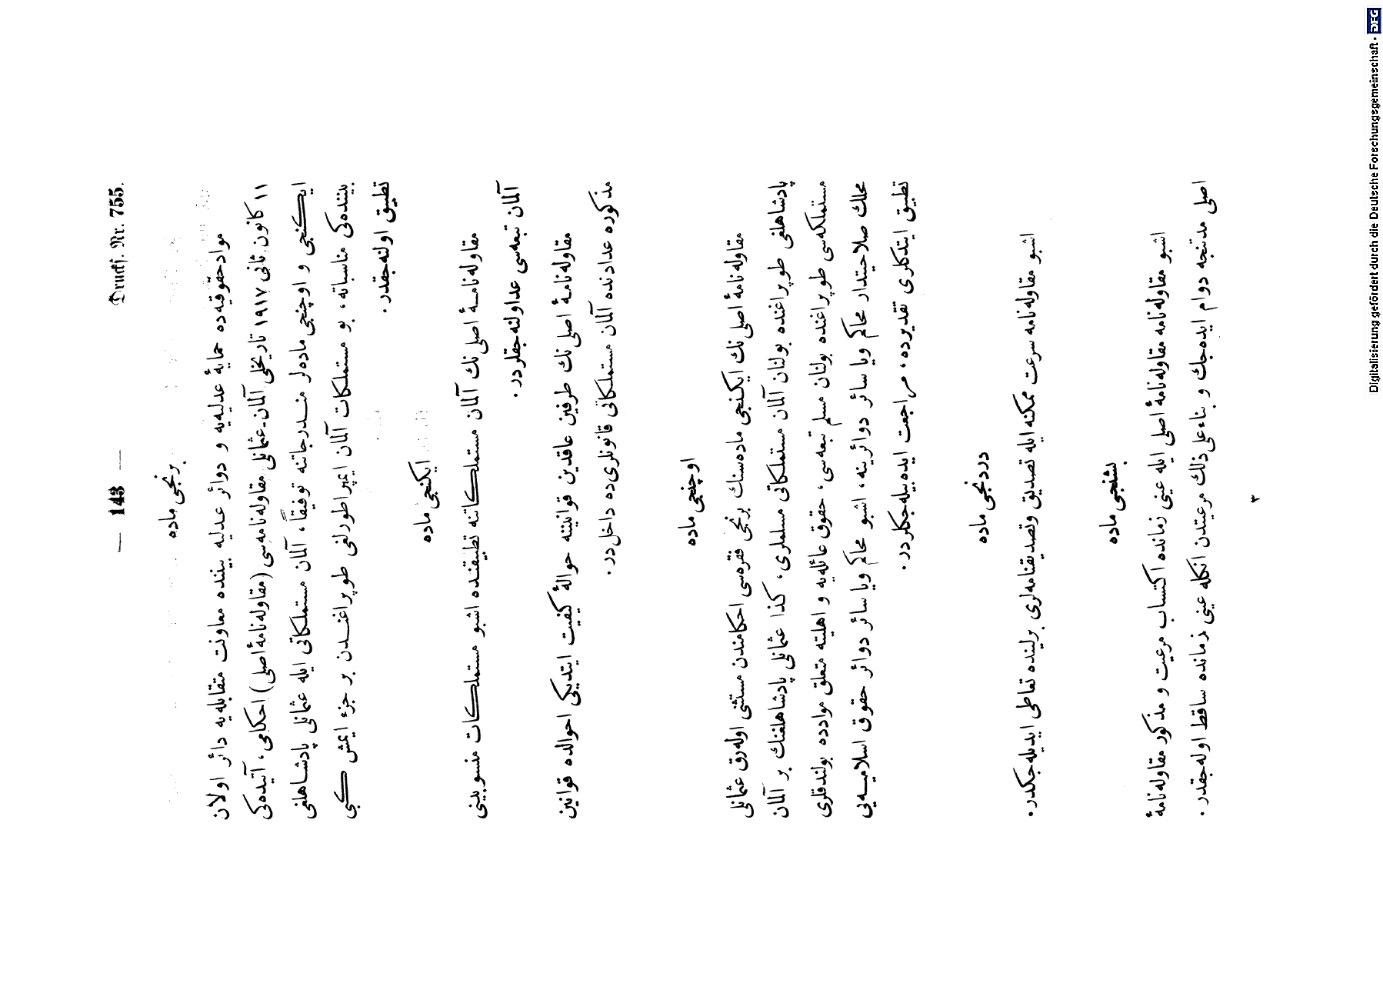 — 143 —
Drucks. Nr. 755.
برنجی ماده
مواد حقوقیه‌ده حمایهٔ عدلیه‌یه و دوائر عدلیه بیننده معاونت متقابله‌یه دائر اولان
١١ كانون ثانی ١٩١٧ تاریخلی آلمان-عثمانلی مقاوله‌نامه‌سی (مقاوله‌نامهٔ اصلی) احكامی، آتیده‌كی
ایكنجی و اوچنجی ماده‌لر مندرجاتنه توفیقاً، آلمان مستملكاتی ایله عثمانلی پادشاهلغی
بیننده‌كی مناسباته، بو مستملكات آلمان ایمپراطورلغی طوپراغندن بر جزء ایمش كبی
تطبیق اولنه‌جقدر.
ایكنجی ماده
مقاوله‌نامهٔ اصلی‌نك آلمان مستملكاتنه تطبیقنده اشبو مستملكات منسوبینی
آلمان تبعه‌سی عد اولنه‌جقلردر.
مقاوله‌نامهٔ اصلی‌نك طرفین عاقدین قوانیننه حوالهٔ كیفیت ایتدیكی احوالده قوانین
مذكوره عدادنده آلمان مستملكاتی قانونلری‌ده داخل‌در.
اوچنجی ماده
مقاوله‌نامهٔ اصلی‌نك ایكنجی ماده‌سنك برنجی فقره‌سی احكامندن مستثنی اوله‌رق عثمانلی
پادشاهلغی طوپراغنده بولنان آلمان مستملكاتی مسلملری، كذا عثمانلی پادشاهلغنك بر آلمان
مستملكه‌سی طوپراغنده بولنان مسلم تبعه‌سی، حقوق عائله‌یه و اهلیته متعلق موادده بولندقلری
محلك صلاحیتدار محاكم ویا سائر دوائرینه، اشبو محاكم ویا سائر دوائر حقوق اسلامیه‌یی
تطبیق ایتدكلری تقدیرده، مراجعت ایده‌بیله‌جكلردر.
دردنجی ماده
اشبو مقاوله‌نامه سرعت ممكنه ایله تصدیق وتصدیقنامه‌لری برلینده تعاطی ایدیله‌جكدر.
بشنجی ماده
اشبو مقاوله‌نامه مقاوله‌نامهٔ اصلی ایله عینی زمانده اكتساب مرعیت و مذكور مقاوله‌نامهٔ
اصلی مدتنجه دوام ایده‌جك و بناءعلی‌ذلك مرعیتدن انكله عینی زمانده ساقط اوله‌جقدر.
٣
Digitalisierung gefördert durch die Deutsche Forschungsgemeinschaft - DFG